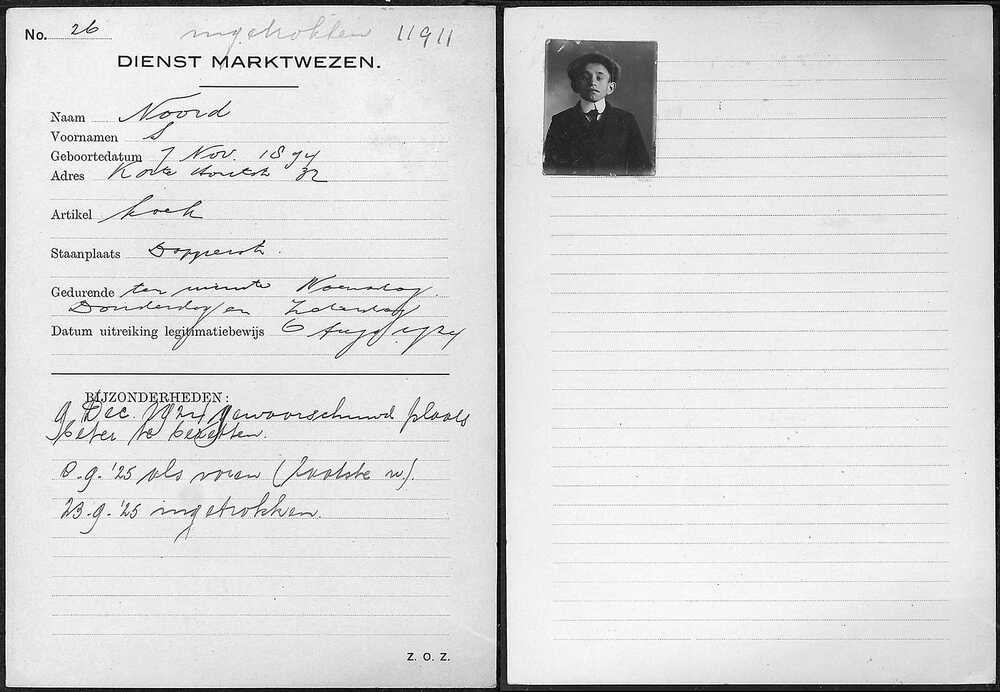 No. 26 ingetrokken 11911
DIENST MARKTWEZEN.
Naam Noord
Voornamen S
Geboortedatum 7 Nov. 1894
Adres Korte Houtstr 32
Artikel koek
Staanplaats Dapperstr.
Gedurende ten minste Woensdag.
Donderdag en Zaterdag
Datum uitreiking legitimatiebewijs 6 Aug 1924
BIJZONDERHEDEN:
9 Dec. 1924 gewaarschuwd plaats
beter te bezetten.
9.'25 als voren (laatste w).
23.9.'25 ingetrokken.
Z. O. Z.